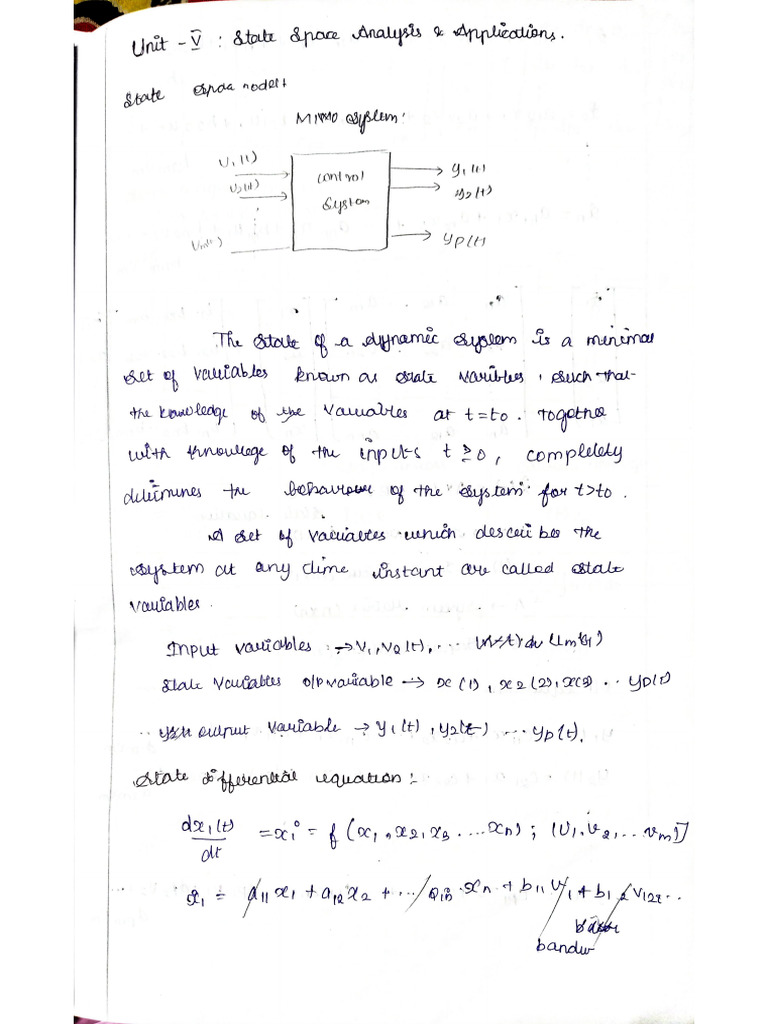 Unit - V : State Space Analysis & Applications.
State
MIMO System:
U1(t)
U2(t)
Um(t)
Control
System
y1(t)
y2(t)
yp(t)
The State of a dynamic System is a minimal
set of variables known as state varibles, such that
the knowledge of the variables at t=to. Together
with knowledge of the inputs t ≥ 0, completely
determines the behaviour of the System for t>to.
A set of variables which describes the
System at any time instant are called State
variables.
Input variables → v1, v2(t), ...
State Variables o/p variable → x(1), x2(2), x(3) .. yp(t)
output variable → y1(t), y2(t) ... yp(t).
State differential equation :-
dx1(t)/dt = x1° = f (x1, x2, x3 ... xn) ; (U1, v2, ... vm)]
x1 = a11 x1 + a12 x2 + ... xn + b11 v1 + b12 v12 ..
bandw